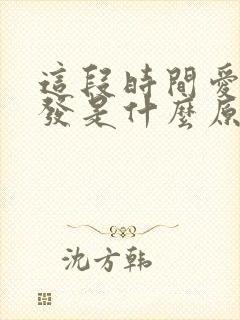 這段時間愛
發是什麼原
沈方韩